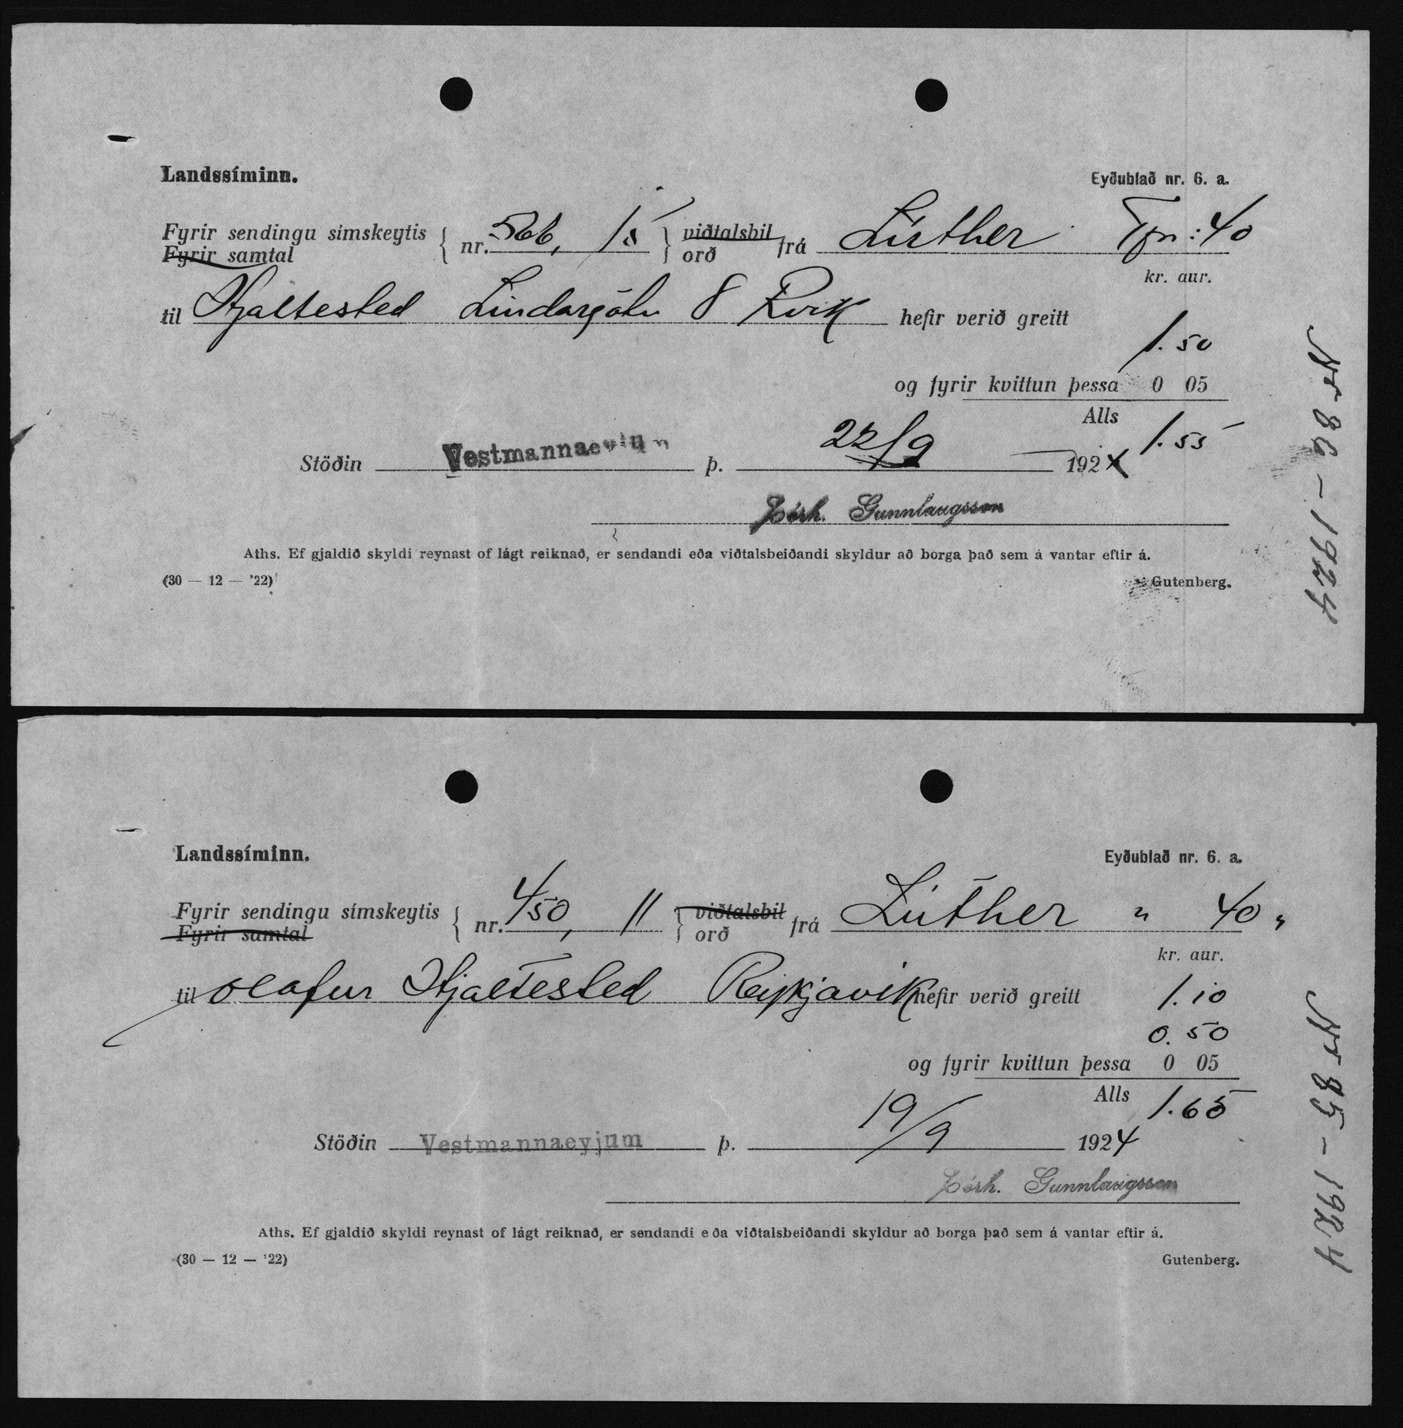 Landssíminn.
Eyðublað nr. 6. a.
Fyrir sendingu símskeytis
Fyrir samtal
nr. 566, 15 viðtalsbil
orð
frá Lúther Tfn: 40
kr. aur.
til Hjaltested Lindargötu 8 Rvik hefir verið greitt
1.50
og fyrir kvittun þessa 0 05
Alls 1.55
Stöðin Vestmannaeyjum þ. 22/9 1924
Þórh. Gunnlaugsson
Aths. Ef gjaldið skyldi reynast of lágt reiknað, er sendandi eða viðtalsbeiðandi skyldur að borga það sem á vantar eftir á.
(30 — 12 — '22)
Gutenberg.
Nr 86 - 1924
Landssíminn.
Eyðublað nr. 6. a.
Fyrir sendingu símskeytis
Fyrir samtal
nr. 450, 11 viðtalsbil
orð
frá Lúther " 40 "
kr. aur.
til Olafur Hjaltested Reykjavik hefir verið greitt 1.10
0.50
og fyrir kvittun þessa 0 05
Alls 1.65
Stöðin Vestmannaeyjum þ. 19/9 1924
Þórh. Gunnlaugsson
Aths. Ef gjaldið skyldi reynast of lágt reiknað, er sendandi eða viðtalsbeiðandi skyldur að borga það sem á vantar eftir á.
(30 — 12 — '22)
Gutenberg.
Nr 85 - 1924